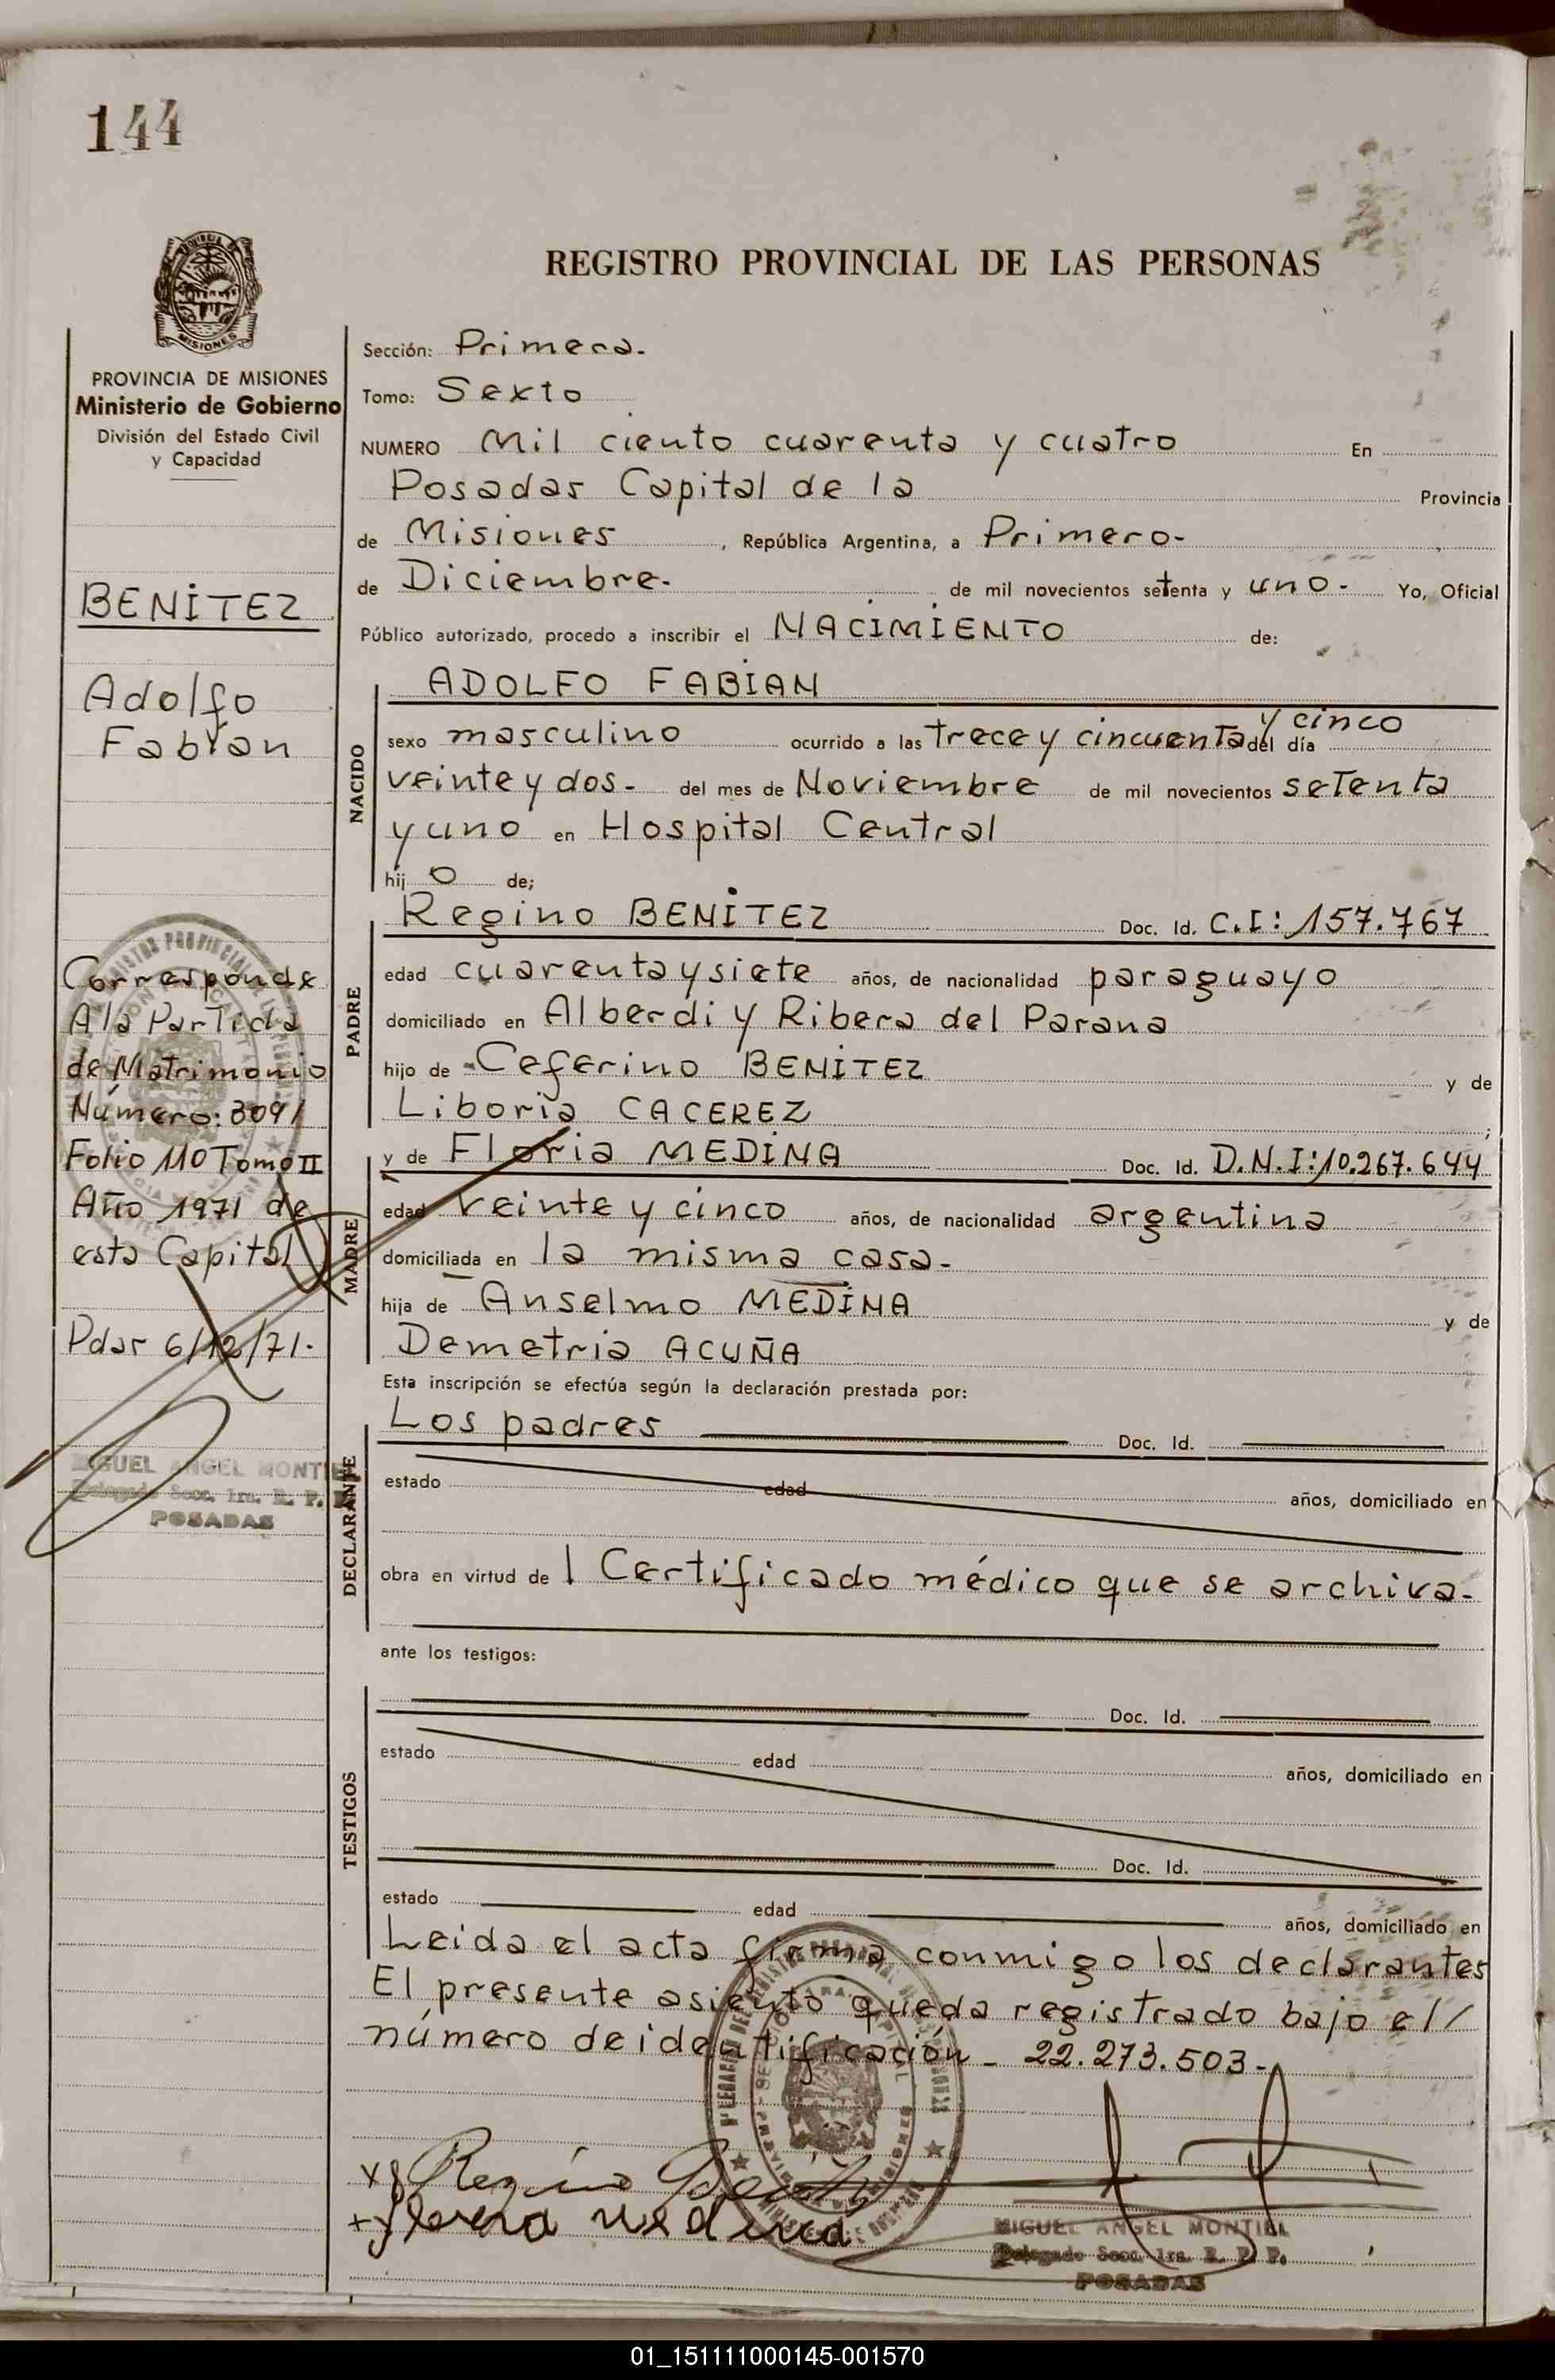 144
MISIONES
REGISTRO PROVINCIAL DE LAS PERSONAS
PROVINCIA DE MISIONES
Ministerio de Gobierno
División del Estado Civil
y Capacidad
BENITEZ
Adolfo
Fabian
Corresponde
A la Partida
de Matrimonio
Número: 309/
Folio 110 Tomo II
Año 1971 de
esta Capital
Pdas 6/12/71.
MIGUEL ANGEL MONTIEL
Delegado Secc. 1ra. R. P. P.
POSADAS
Sección: Primera.
Tomo: Sexto
NUMERO Mil ciento cuarenta y cuatro En
Posadas Capital de la Provincia
de Misiones, República Argentina, a Primero-
de Diciembre. de mil novecientos setenta y uno- Yo, Oficial
Público autorizado, procedo a inscribir el NACIMIENTO de:
NACIDO
ADOLFO FABIAN
y cinco
sexo masculino ocurrido a las trece y cincuenta del día
veinte y dos- del mes de Noviembre de mil novecientos setenta
y uno en Hospital Central
hij o de;
PADRE
Regino BENITEZ Doc. Id. C.I: 157.767
edad cuarenta y siete años, de nacionalidad paraguayo
domiciliado en Alberdi y Ribera del Parana
hijo de Ceferino BENITEZ y de
Liboria CACEREZ ;
MADRE
y de Floria MEDINA Doc. Id. D.N.I: 10.267.644
edad veinte y cinco años, de nacionalidad argentina
domiciliada en la misma casa-
hija de Anselmo MEDINA y de
Demetria ACUÑA
Esta inscripción se efectúa según la declaración prestada por:
DECLARANTE
Los padres Doc. Id.
estado edad años, domiciliado en
obra en virtud de 1 Certificado médico que se archiva-
ante los testigos:
TESTIGOS
Doc. Id.
estado edad años, domiciliado en
Doc. Id.
estado edad años, domiciliado en
Leida el acta firma conmigo los declarantes
El presente asiento queda registrado bajo el/
número de identificación - 22.273.503-
Regino Benitez
Medina
MIGUEL ANGEL MONTIEL
Delegado Secc. 1ra. R. P. P.
POSADAS
01_151111000145-001570